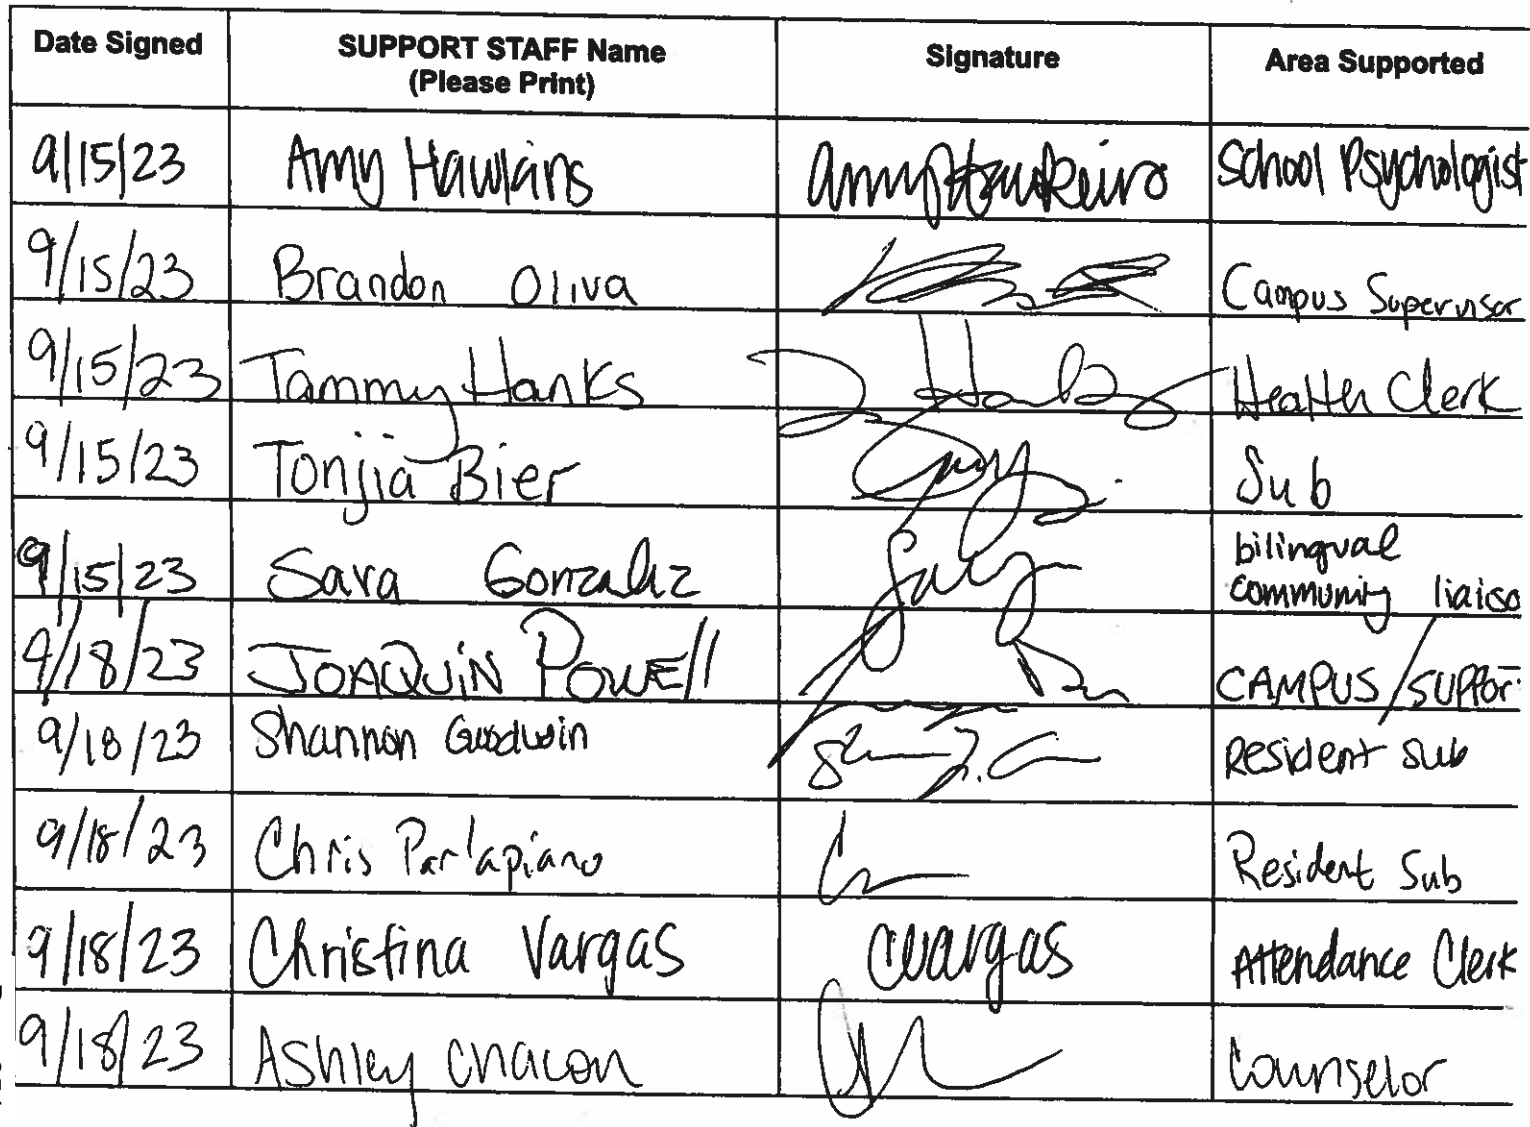 Date Signed SUPPORT STAFF Name Signature Area Supported
(Please Print)
9/15/23 Amy Hawkins Amy Hawkins School Psychologist
9/15/23 Brandon Oliva Campus Supervisor
9/15/23 Tammy Hanks Health Clerk
9/15/23 Tonjia Bier Sub
9/15/23 Sara Gonzalez bilingual
community liaiso
9/18/23 JOAQUIN POWEll CAMPUS/SUPPOR
9/18/23 Shannon Goodwin Resident Sub
9/18/23 Chris Parlapiano Resident Sub
9/18/23 Christina Vargas CVargas Attendance Clerk
9/18/23 Ashley Chacon Counselor